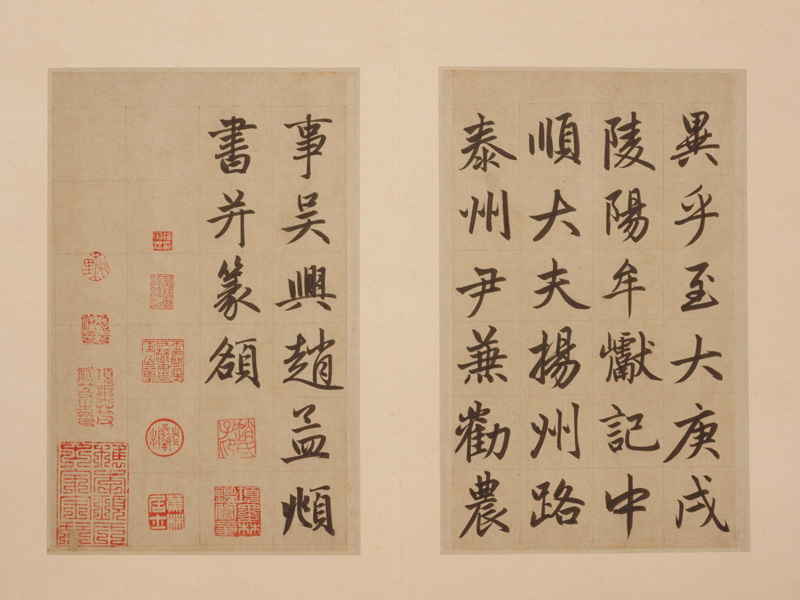 異乎至大庚戌
陵陽牟巘記中
順大夫揚州路
泰州尹兼勸農
事吳興趙孟頫
書并篆額
趙氏子昂